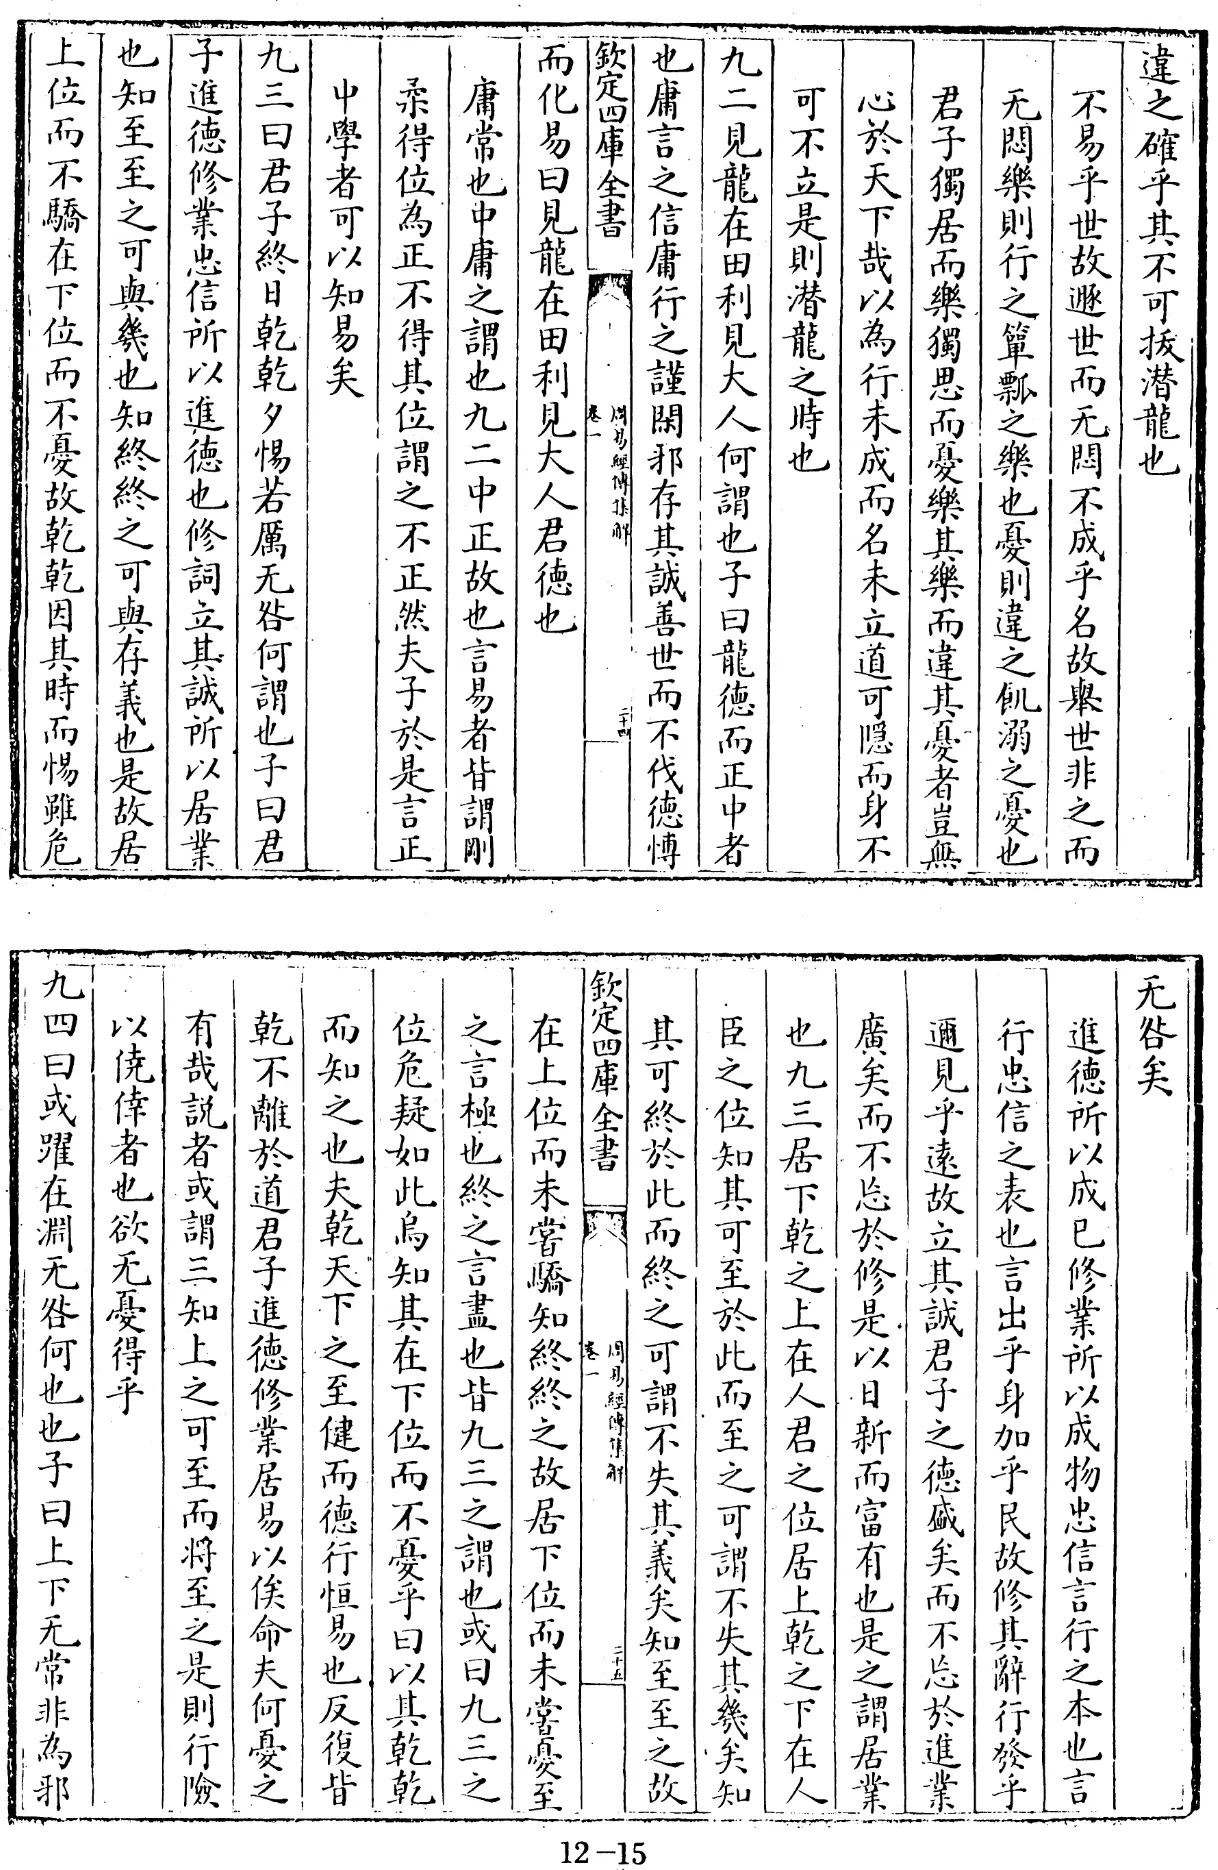 違之確乎其不可拔潛龍也
不易乎世故遯世而无悶不成乎名故舉世非之而
无悶樂則行之簞瓢之樂也憂則違之飢溺之憂也
君子獨居而樂獨思而憂樂其樂而違其憂者豈無
心於天下哉以為行未成而名未立道可隱而身不
可不立是則潛龍之時也
九二見龍在田利見大人何謂也子曰龍德而正中者
也庸言之信庸行之謹閑邪存其誠善世而不伐德博
欽定四庫全書
周易經傳集解
卷一
二十四
而化易曰見龍在田利見大人君德也
庸常也中庸之謂也九二中正故也言易者皆謂剛
柔得位為正不得其位謂之不正然夫子於是言正
中學者可以知易矣
九三曰君子終日乾乾夕惕若厲无咎何謂也子曰君
子進德修業忠信所以進德也修詞立其誠所以居業
也知至至之可與幾也知終終之可與存義也是故居
上位而不驕在下位而不憂故乾乾因其時而惕雖危
无咎矣
進德所以成已修業所以成物忠信言行之本也言
行忠信之表也言出乎身加乎民故修其辭行發乎
邇見乎遠故立其誠君子之德盛矣而不忘於進業
廣矣而不忘於修是以日新而富有也是之謂居業
也九三居下乾之上在人君之位居上乾之下在人
臣之位知其可至於此而至之可謂不失其幾矣知
其可終於此而終之可謂不失其義矣知至至之故
欽定四庫全書
周易經傳集解
卷一
二十五
在上位而未嘗驕知終終之故居下位而未嘗憂至
之言極也終之言盡也皆九三之謂也或曰九三之
位危疑如此烏知其在下位而不憂乎曰以其乾乾
而知之也夫乾天下之至健而德行恒易也反復皆
乾不離於道君子進德修業居易以俟命夫何憂之
有哉説者或謂三知上之可至而將至之是則行險
以僥倖者也欲无憂得乎
九四曰或躍在淵无咎何也也子曰上下无常非為邪
12-15